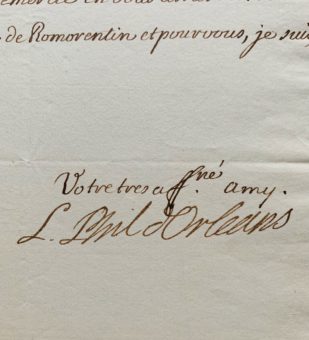 de Romorentin et pour vous, je suis
Votre tres aff.né amy.
L. Phil d'Orleans